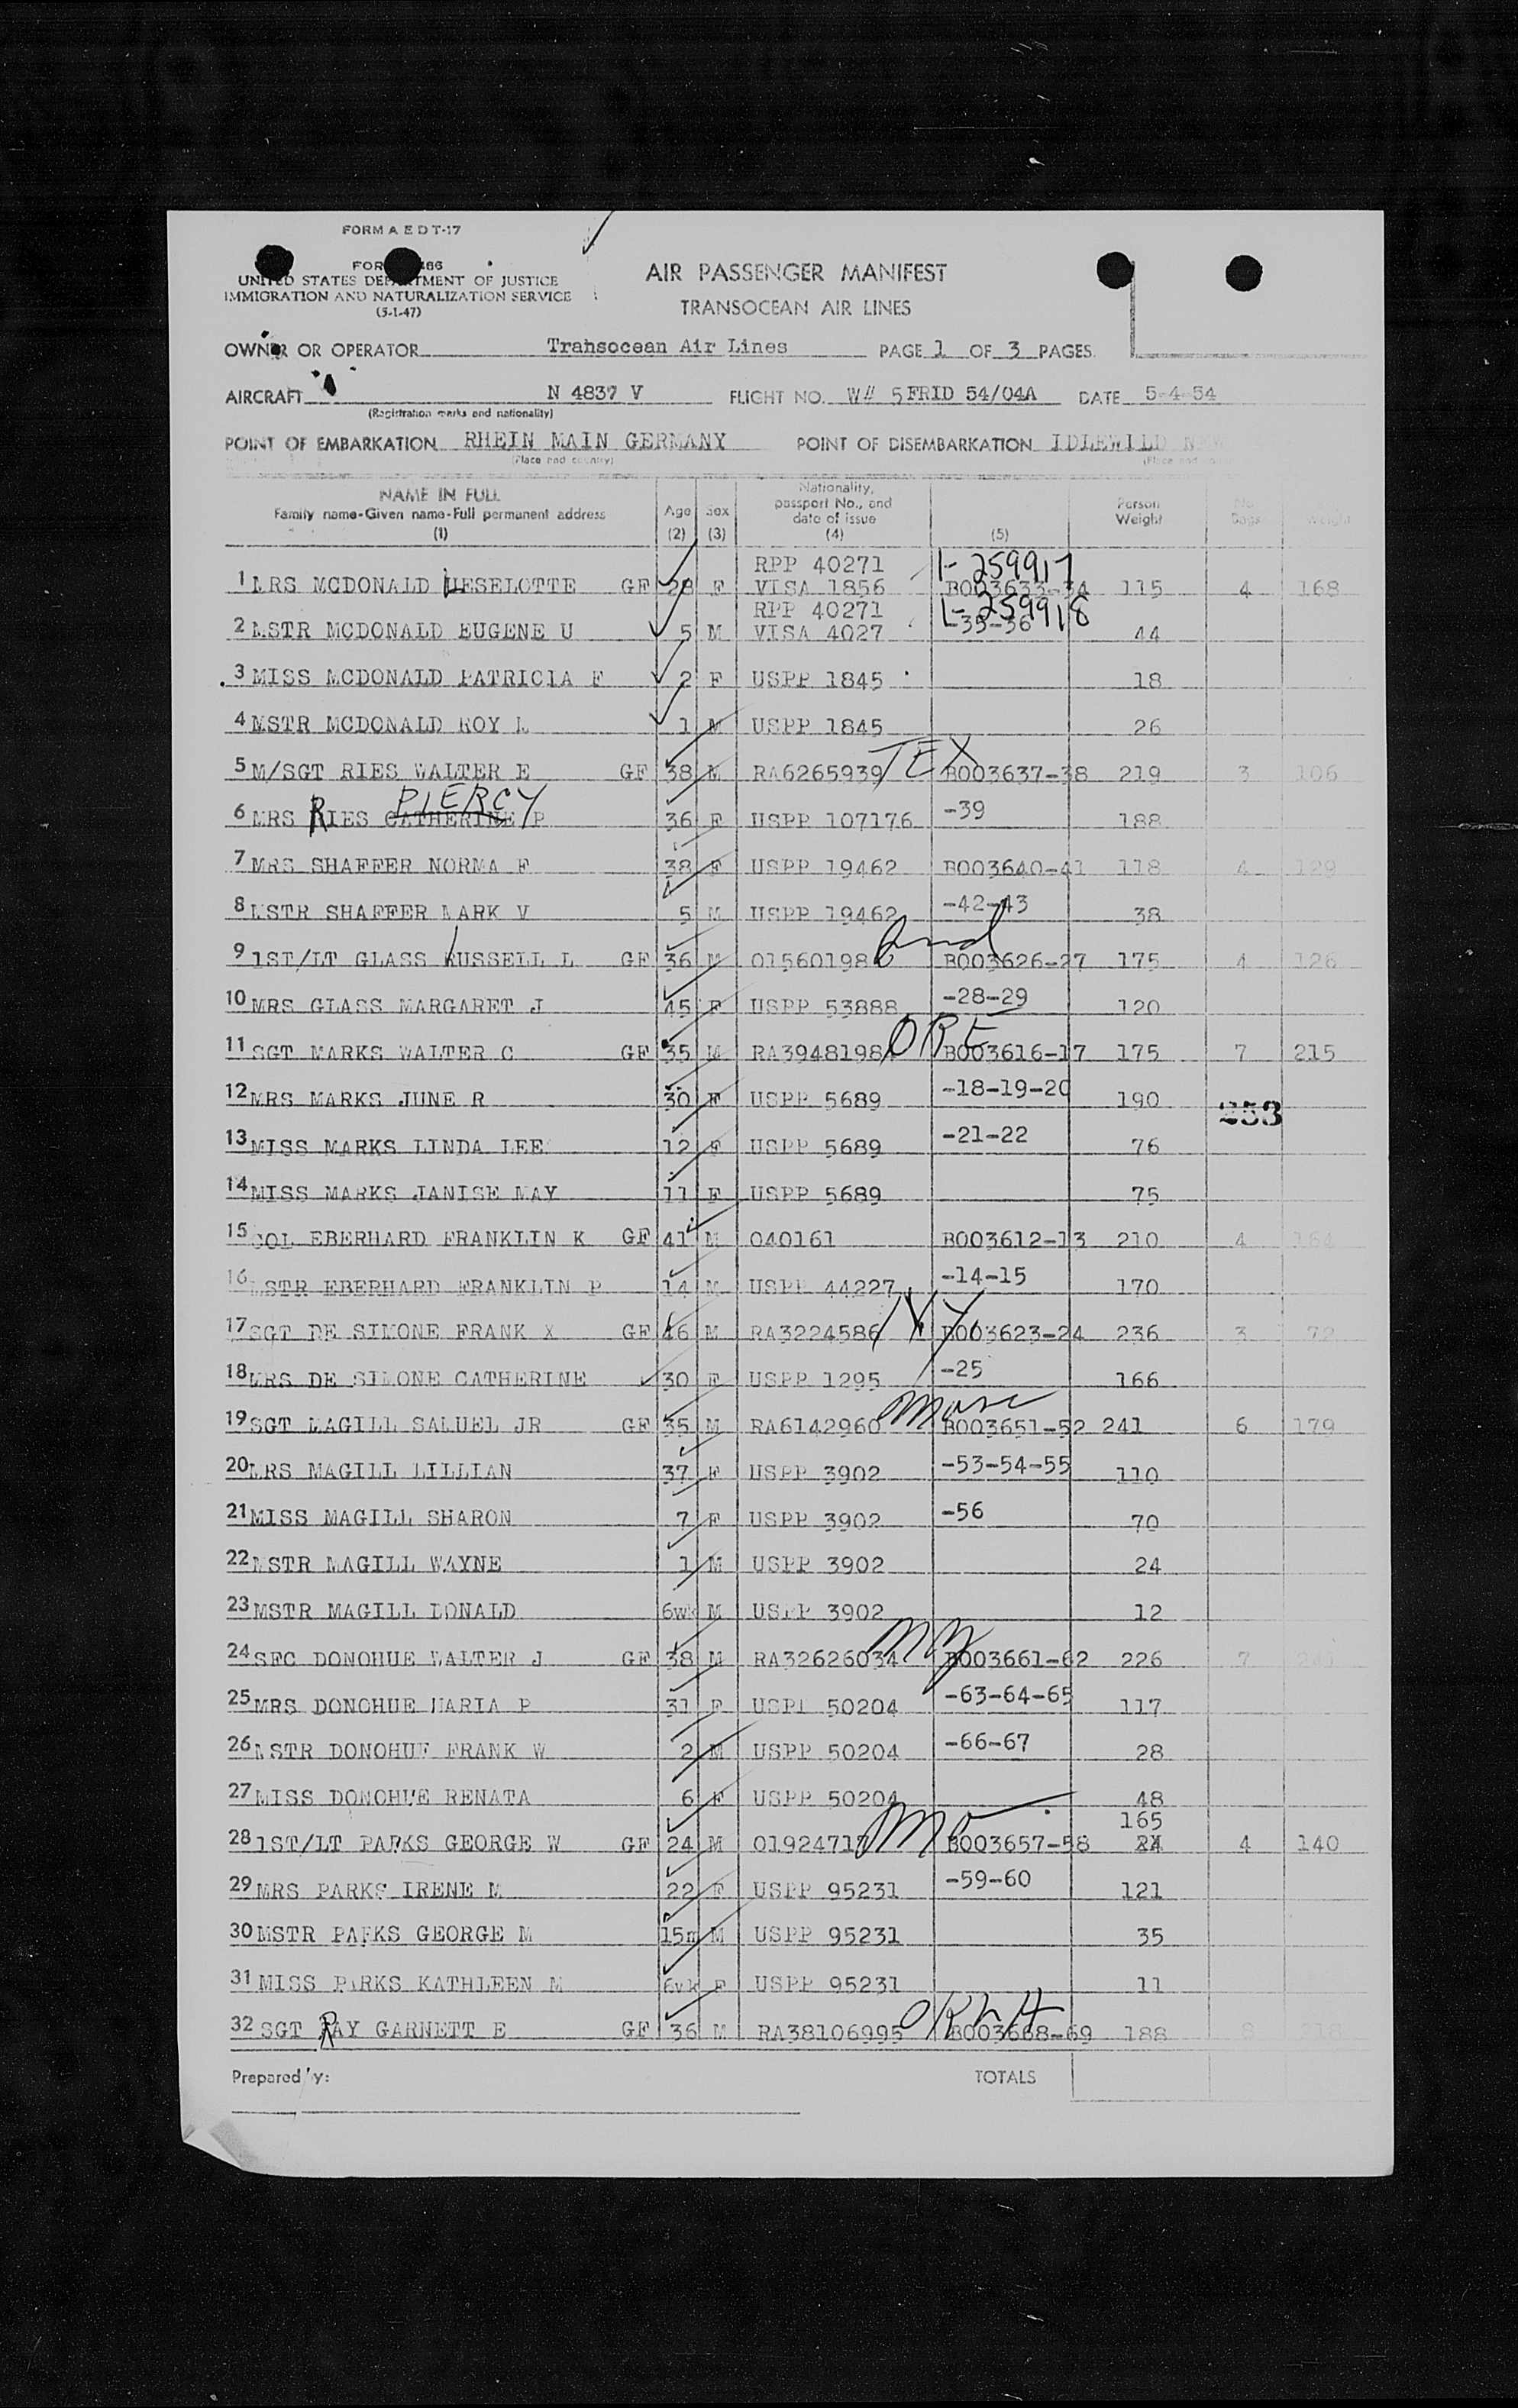 FORM A E D T-17
UNITED STATES DEPARTMENT OF JUSTICE
IMMIGRATION AND NATURALIZATION SERVICE
(5-1-47)
AIR PASSENGER MANIFEST
TRANSOCEAN AIR LINES
OWNER OR OPERATOR Transocean Air Lines PAGE 1 OF 3 PAGES
AIRCRAFT N 4837 V FLIGHT NO. W# 5FRID 54/04A DATE 5-4-54
(Registration marks and nationality)
POINT OF EMBARKATION RHEIN MAIN GERMANY POINT OF DISEMBARKATION IDLEWILD
(Place and country)
NAME IN FULL
Family name-Given name-Full permanent address
(1)
Age (2)
Sex (3)
Nationality, passport No., and date of issue
(4)
(5)
Person Weight
No. Bags
Weight
RPP 40271 1-259917
1 MRS MCDONALD LIESELOTTE GF 28 F VISA 1856 B003633-34 115 4 168
RPP 40271 1-259918
2 MSTR MCDONALD EUGENE U 5 M VISA 4027 -35-36 44
3 MISS MCDONALD PATRICIA F 2 F USPP 1845 18
4 MSTR MCDONALD ROY L 1 M USPP 1845 26
TEX
5 M/SGT RIES WALTER E GF 38 M RA6265939 B003637-38 219 3 106
PIERCY
6 MRS RIES CATHERINE P 36 F USPP 107176 -39 188
7 MRS SHAFFER NORMA F 38 F USPP 19462 B003640-41 118 4 129
8 MSTR SHAFFER MARK V 5 M USPP 19462 -42-43 38
Ind
9 1ST/LT GLASS RUSSELL L GF 36 M 0156019 B003626-27 175 4 126
10 MRS GLASS MARGARET J 45 F USPP 53888 -28-29 120
ORE
11 SGT MARKS WALTER C GF 35 M RA3948198 B003616-17 175 7 215
12 MRS MARKS JUNE R 30 F USPP 5689 -18-19-20 190
253
13 MISS MARKS LINDA LEE 12 F USPP 5689 -21-22 76
14 MISS MARKS JANISE MAY 11 F USPP 5689 75
15 COL EBERHARD FRANKLIN K GF 41 M 040161 B003612-13 210 4 164
16 MSTR EBERHARD FRANKLIN P 14 M USPP 44227 -14-15 170
NY
17 SGT DE SIMONE FRANK X GF 46 M RA3224586 B003623-24 236 3 72
18 MRS DE SIMONE CATHERINE 30 F USPP 1295 -25 166
Mass
19 SGT MAGILL SAMUEL JR GF 35 M RA6142960 B003651-52 241 6 179
20 MRS MAGILL LILLIAN 37 F USPP 3902 -53-54-55 110
21 MISS MAGILL SHARON 7 F USPP 3902 -56 70
22 MSTR MAGILL WAYNE 1 M USPP 3902 24
23 MSTR MAGILL DONALD 6wk M USPP 3902 12
NY
24 SFC DONOHUE WALTER J GF 38 M RA32626034 B003661-62 226 7
25 MRS DONOHUE MARIA P 31 F USPP 50204 -63-64-65 117
26 MSTR DONOHUE FRANK W 2 M USPP 50204 -66-67 28
27 MISS DONOHUE RENATA 6 F USPP 50204 48
Mo 165
28 1ST/LT PARKS GEORGE W GF 24 M 0192471 B003657-58 24 4 140
29 MRS PARKS IRENE M 22 F USPP 95231 -59-60 121
30 MSTR PARKS GEORGE M 15m M USPP 95231 35
31 MISS PARKS KATHLEEN M 6wk F USPP 95231 11
OKLA
32 SGT RAY GARNETT E GF 36 M RA38106995 B003668-69 188
Prepared by: TOTALS